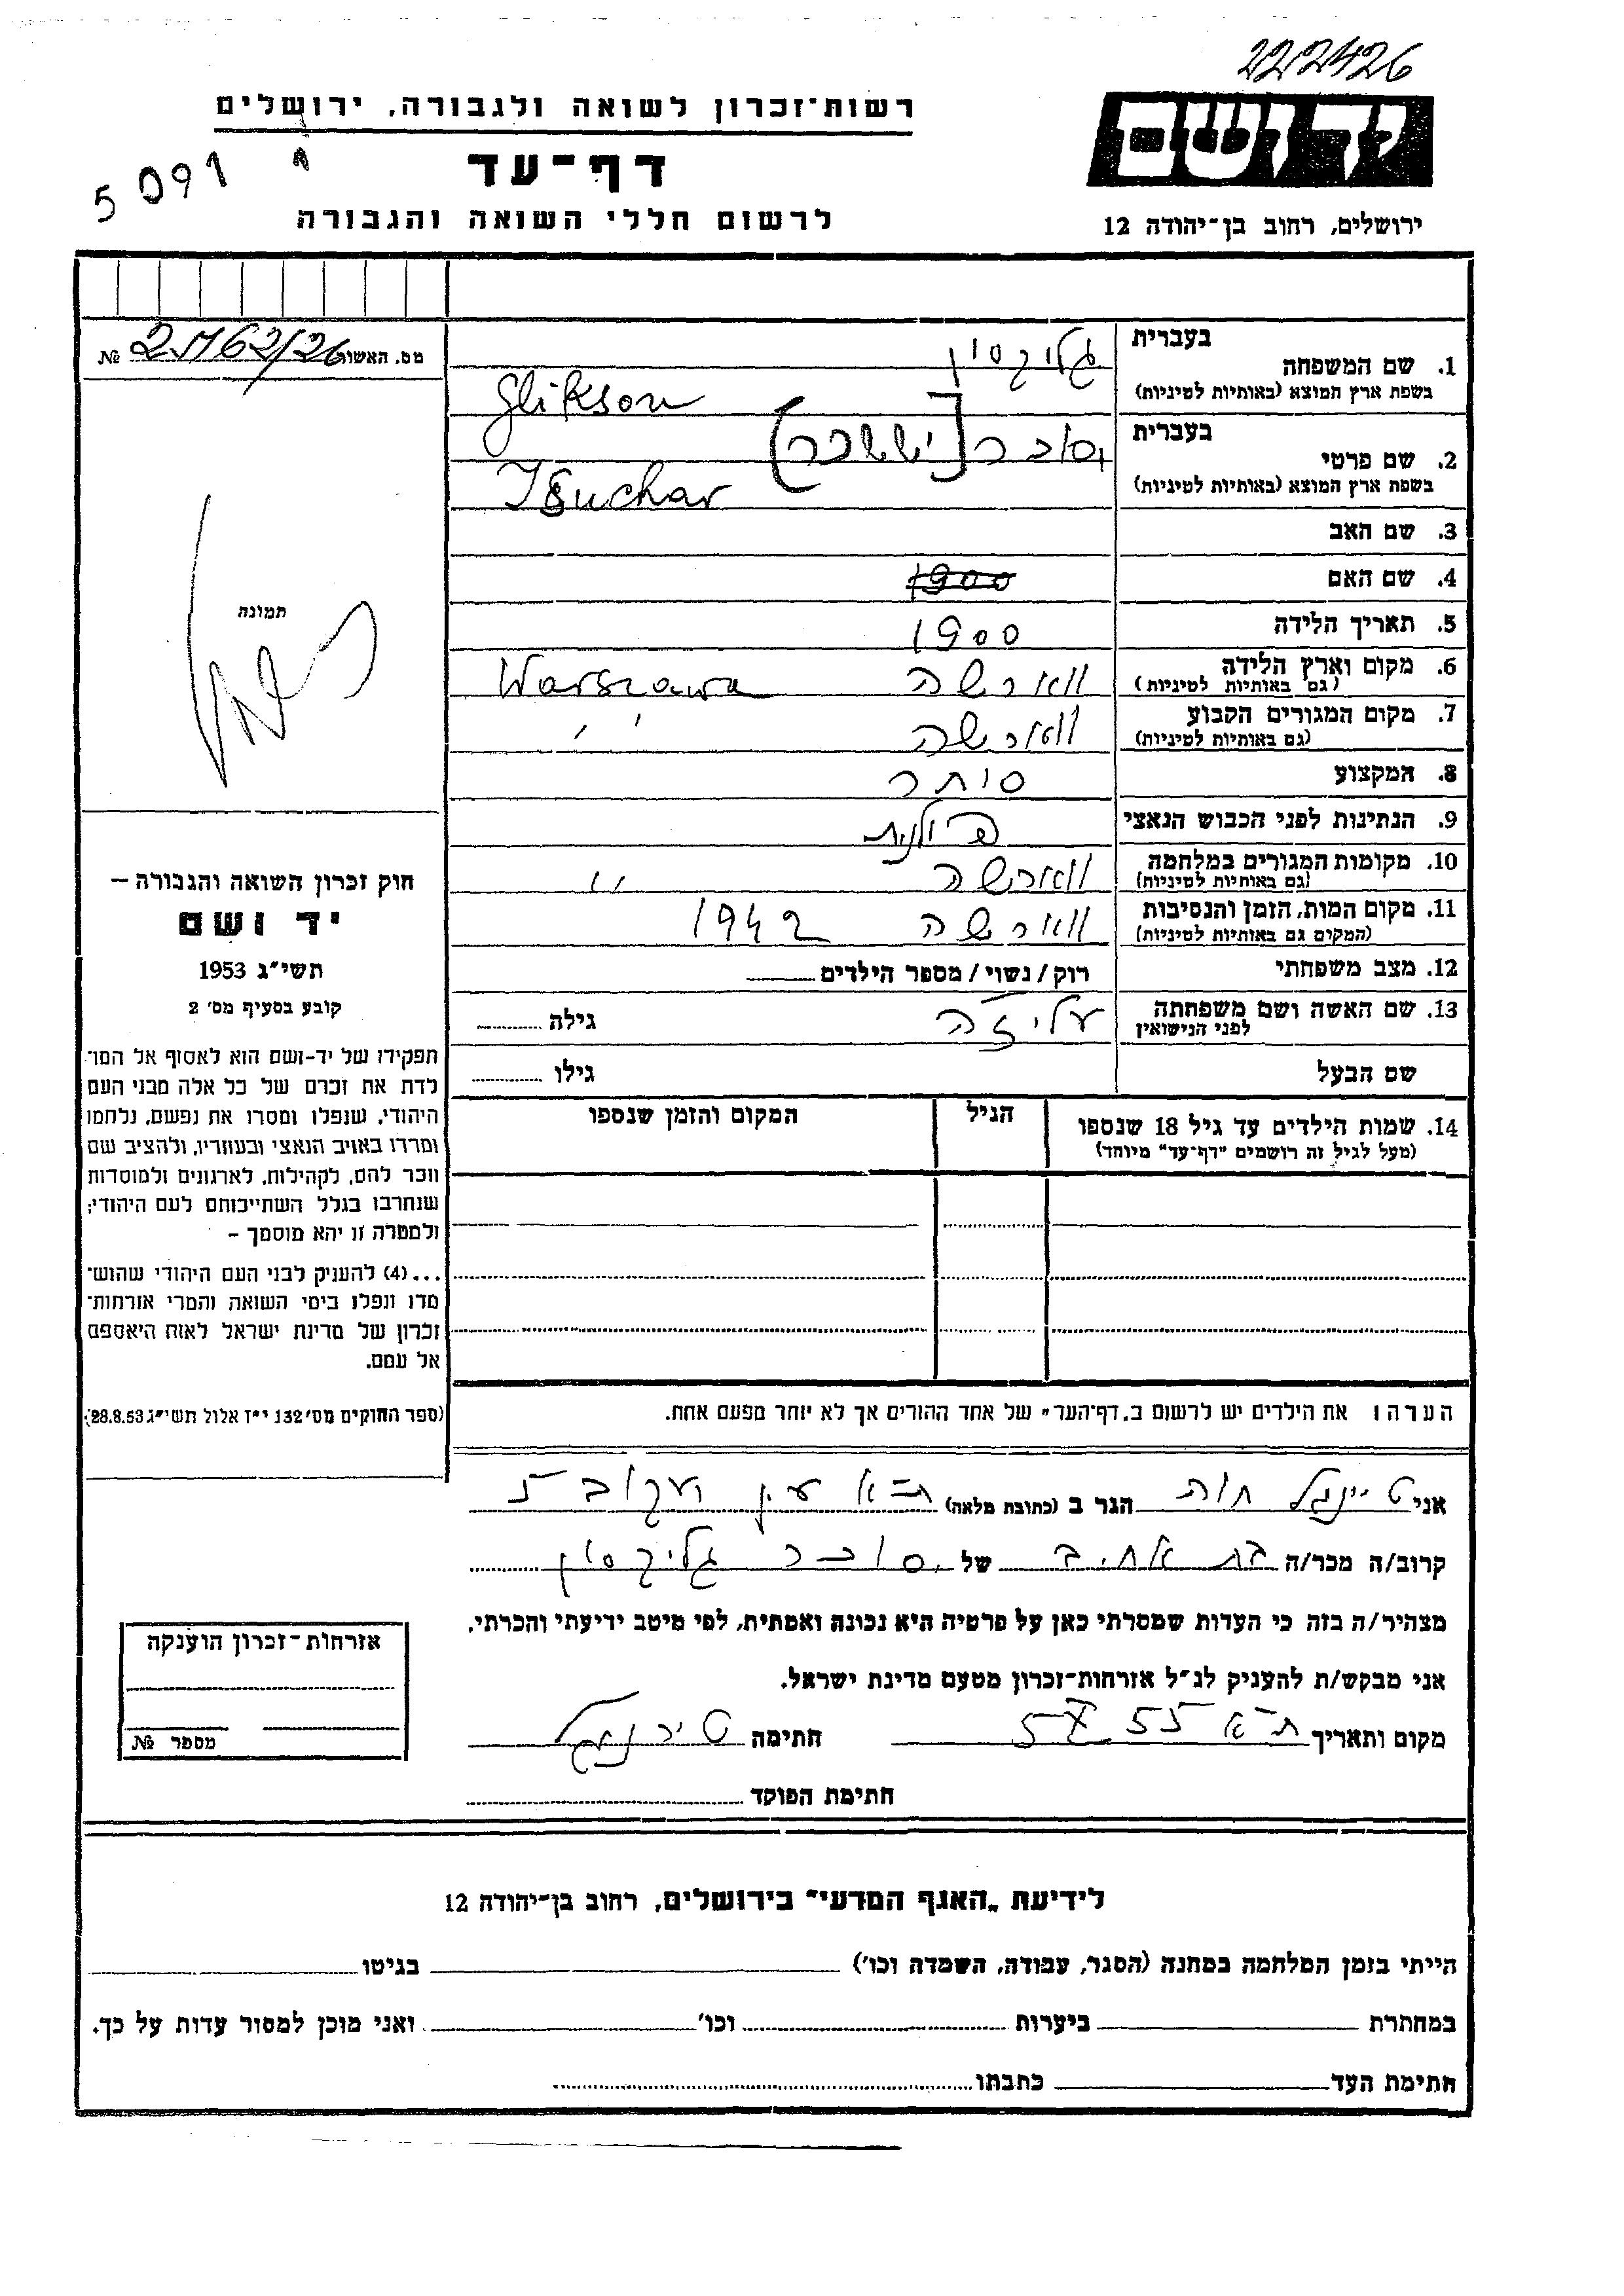 222426
רשות־זכרון לשואה ולגבורה, ירושלים
יד ושם
דף־עד
5091
לרשום חללי השואה והגבורה
ירושלים, רחוב בן־יהודה 12
1. שם המשפחה
בעברית גליקסון
(בשפת ארץ המוצא (באותיות לטיניות) Glikson
2. שם פרטי
בעברית יסוכר [יששכר]
בשפת ארץ המוצא (באותיות לטיניות) Isuchar
3. שם האב
4. שם האם 1900
5. תאריך הלידה 1900
6. מקום וארץ הלידה ווארשה Warszawa
(גם באותיות לטיניות)
7. מקום המגורים הקבוע ווארשה ״
(גם באותיות לטיניות)
8. המקצוע סוחר
9. הנתינות לפני הכבוש הנאצי פולנית
10. מקומות המגורים במלחמה ווארשה ״
(גם באותיות לטיניות)
11. מקום המות, הזמן והנסיבות ווארשה 1942
(המקום גם באותיות לטיניות)
12. מצב משפחתי רוק / נשוי / מספר הילדים
13. שם האשה ושם משפחתה עליזה גילה
לפני הנישואין
שם הבעל גילו
14. שמות הילדים עד גיל 18 שנספו הגיל המקום והזמן שנספו
(מעל לגיל זה רושמים "דף־עד" מיוחד)
הערה: את הילדים יש לרשום ב„דף־העד״ של אחד ההורים אך לא יותר מפעם אחת.
מס. האשור № 
תמונה
חוק זכרון השואה והגבורה –
יד ושם
תשי״ג 1953
קובע בסעיף מס׳ 2
תפקידו של יד-ושם הוא לאסוף אל המו־
לדת את זכרם של כל אלה מבני העם
היהודי, שנפלו ומסרו את נפשם, נלחמו
ומרדו באויב הנאצי ובעוזריו, ולהציב שם
וזכר להם, לקהילות, לארגונים ולמוסדות
שנחרבו בגלל השתייכותם לעם היהודי;
ולמטרה זו יהא מוסמך –
...(4) להעניק לבני העם היהודי שהוש־
מדו ונפלו בימי השואה והמרי אזרחות־
זכרון של מדינת ישראל לאות היאספם
אל עמם.
(ספר החוקים מס׳ 132 י״ז אלול תשי״ג 28.8.53)
אני חוה הגר ב (כתובת מלאה) ת״א עין יעקוב 5
קרוב/ה מכר/ה בת אחיו של יסוכר גליקסון
מצהיר/ה בזה כי העדות שמסרתי כאן על פרטיה היא נכונה ואמתית, לפי מיטב ידיעתי והכרתי.
אני מבקש/ת להעניק לנ״ל אזרחות־זכרון מטעם מדינת ישראל.
מקום ותאריך ת״א חתימה
חתימת הפוקד
אזרחות־זכרון הוענקה
מספר №
לידיעת „האגף המדעי״ בירושלים, רחוב בן־יהודה 12
הייתי בזמן המלחמה במחנה (הסגר, עבודה, השמדה וכו׳) בגיטו
במחתרת ביערות וכו׳ ואני מוכן למסור עדות על כך.
חתימת העד כתבתו